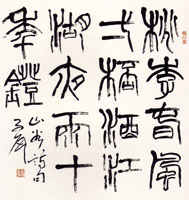 桃李春風
弌桮酒江
湖夜雨十
年鐙
山谷詩句